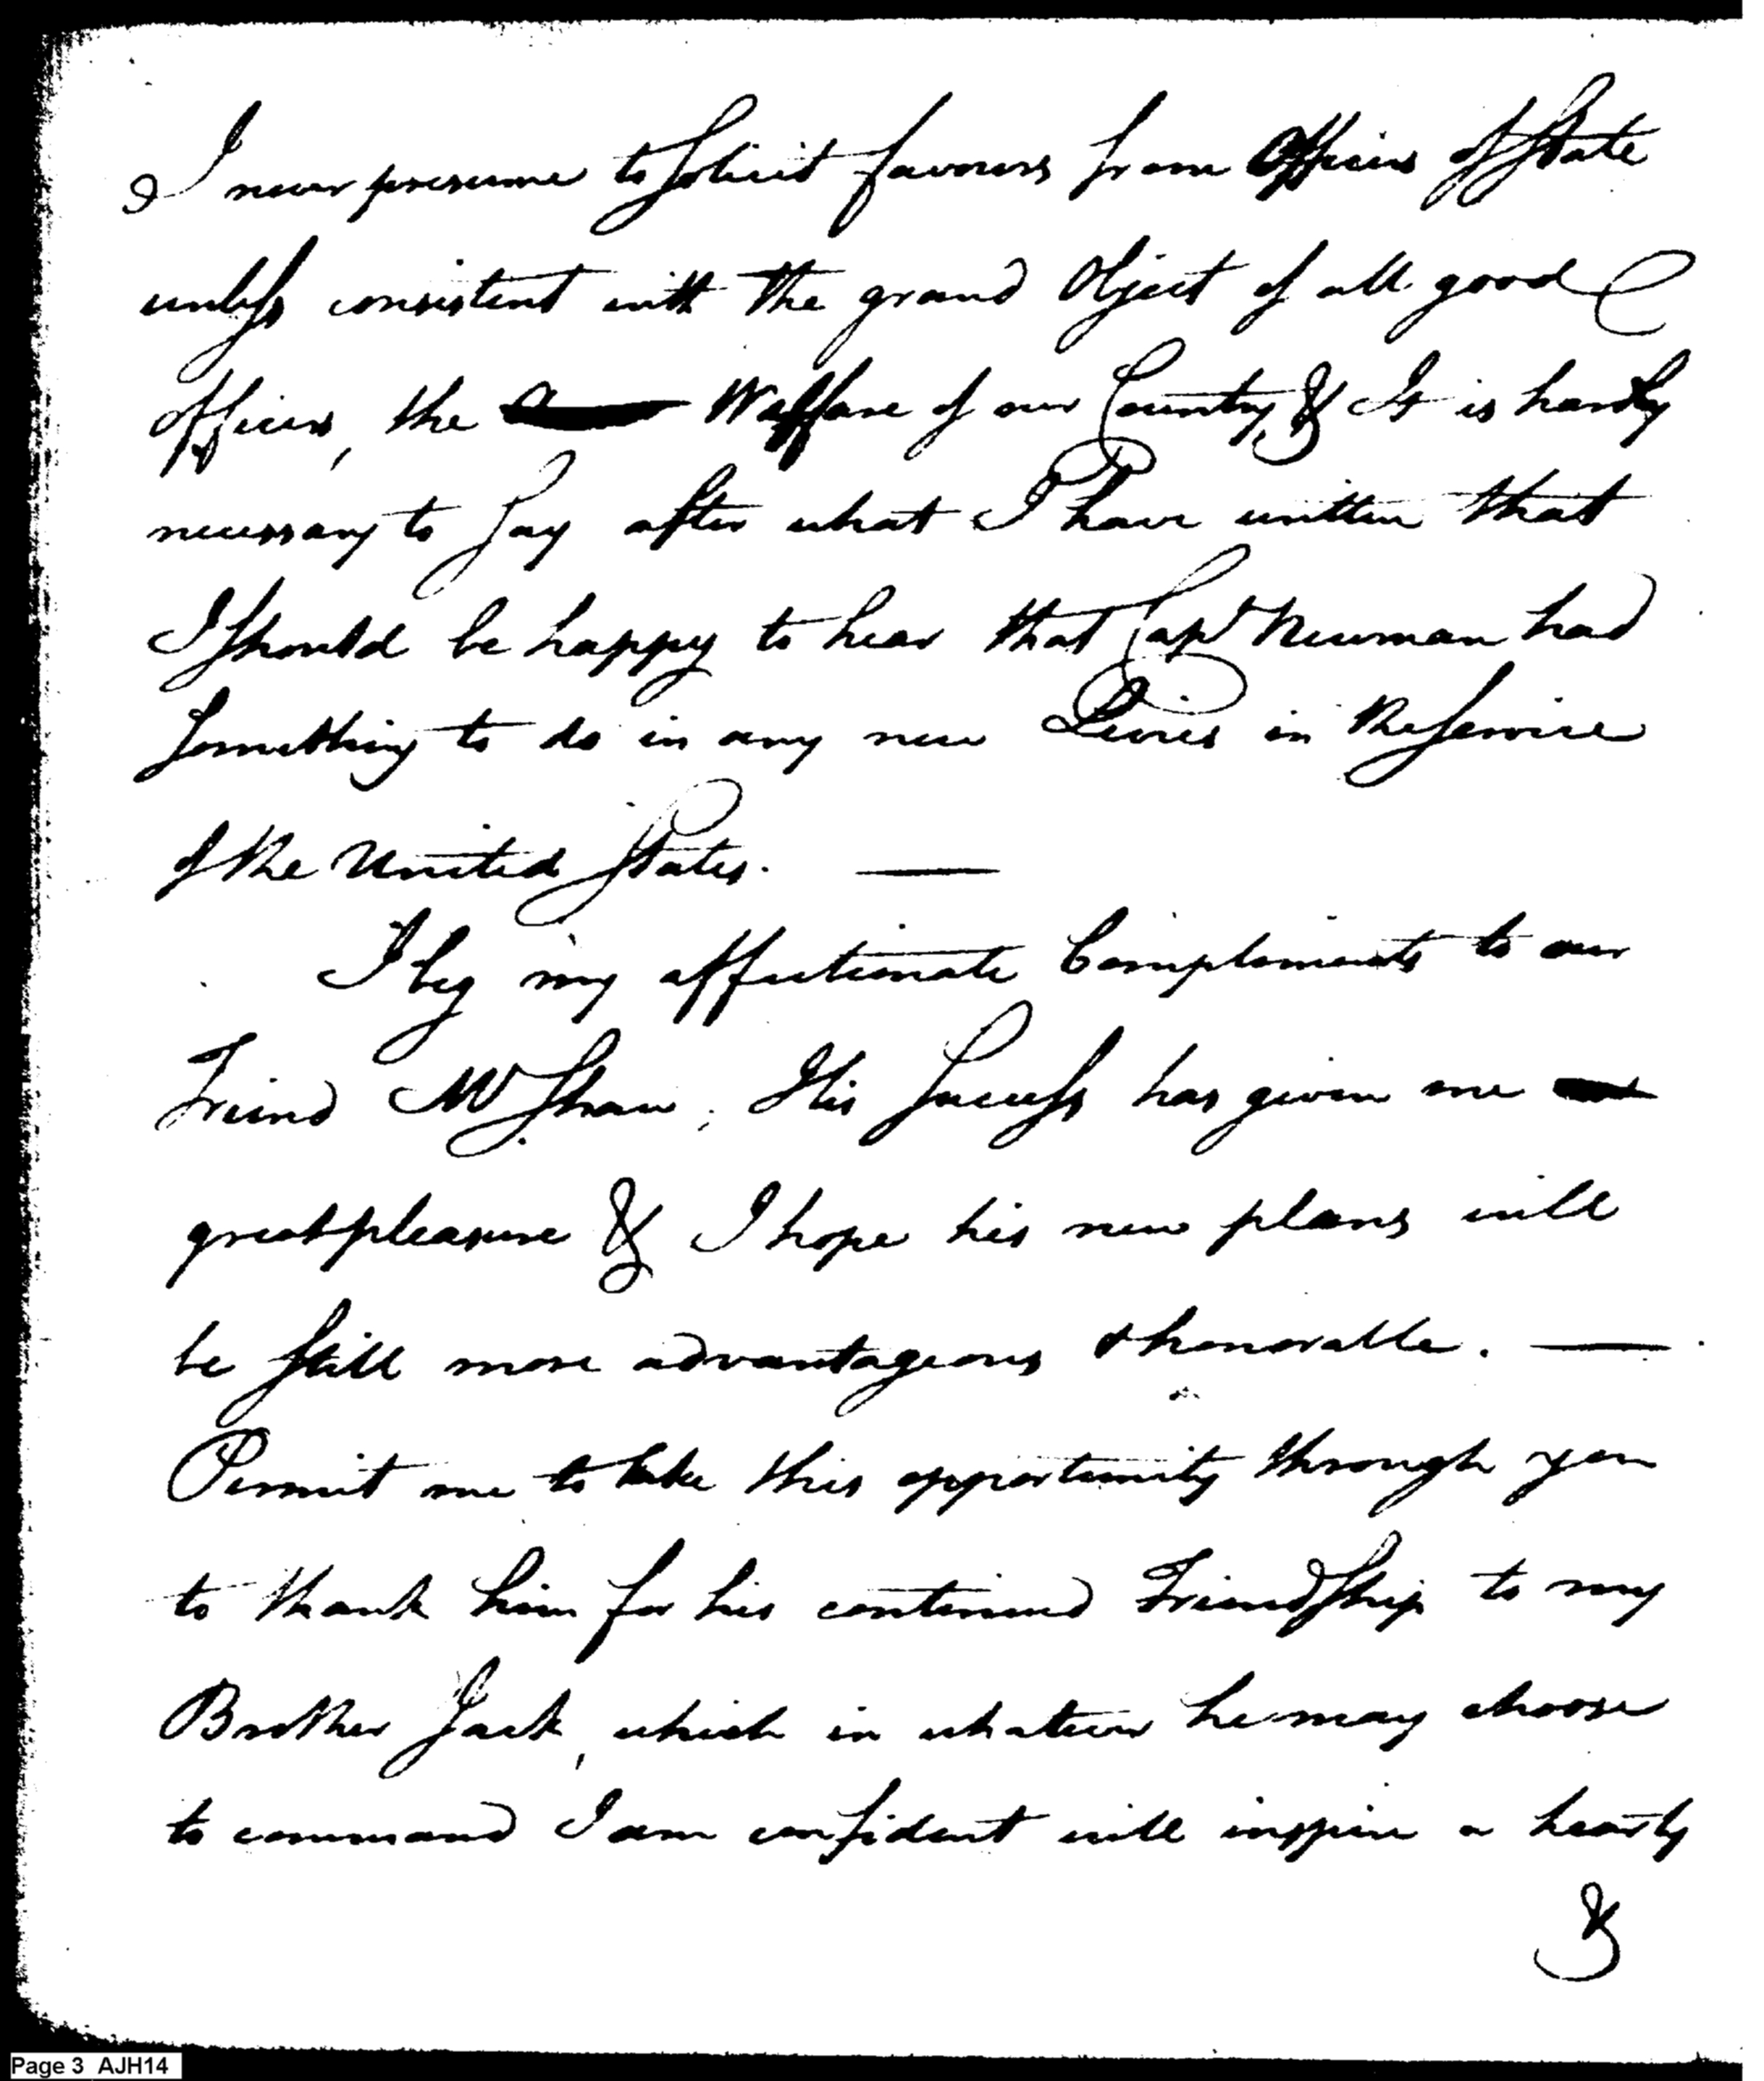 I never presume to Solicit favours from Officers of State
unless consistent with the grand Object of all good
Officers, the Wellfare of our Country, & It is hardly
necessary to Say after what I have written that
I Should be happy to hear that Capt Newman had
Something to do in any new Levies in the Service
of the United States. —
I beg my affectionate Compliments to our
Friend Mr. Shaw. His Success has given me
great pleasure & I hope his new plans will
be Still more advantageous & honorable. —
Permit me to take this opportunity through you
to thank him for his continued FriendShip to my
Brother Jack, which in whatever he may choose
to command I am confident will inspire a hearty
&
Page 3 AJH14